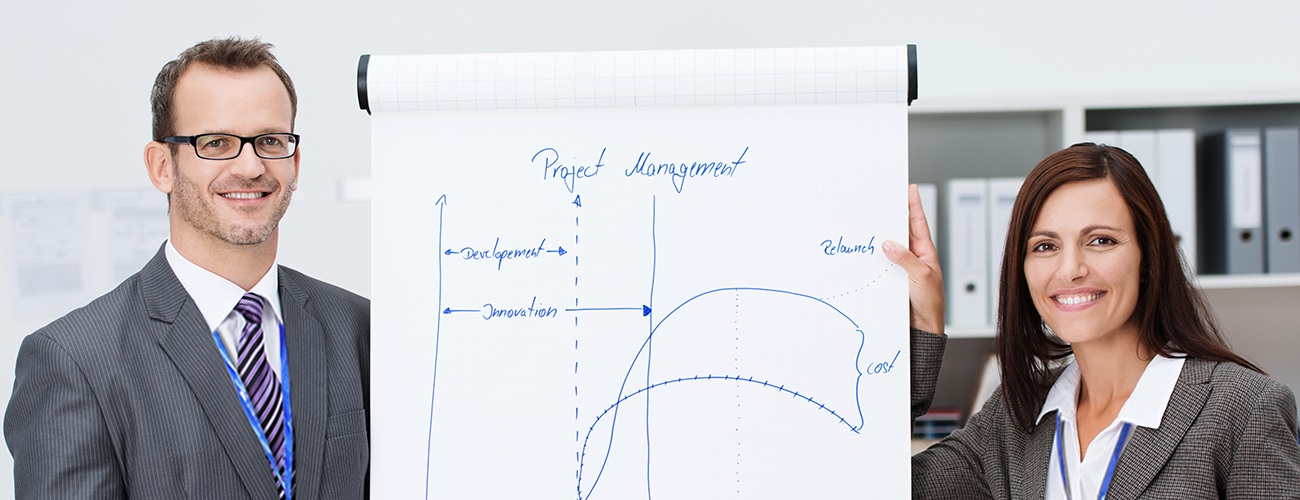 Project Management
Relaunch
Developement
Innovation
cost